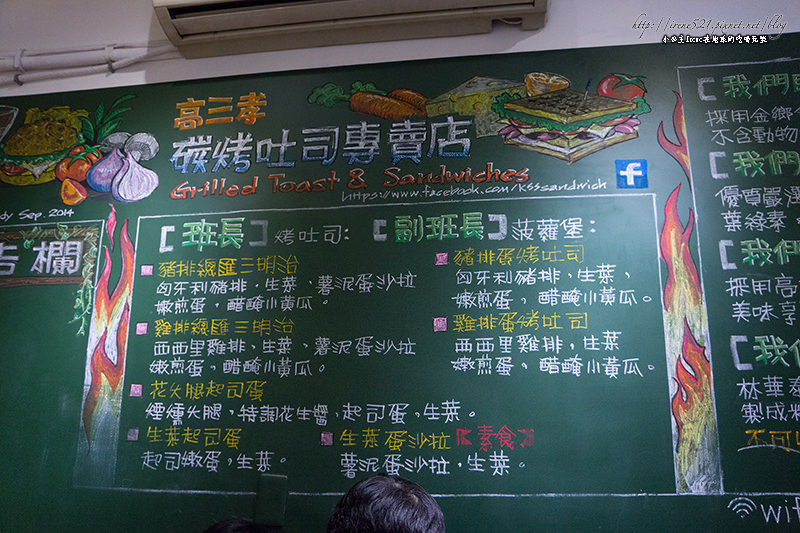 http://irene521.pixnet.net/blog
小公主Irene在地球的吃喝玩樂
高三孝
碳烤吐司專賣店
Grilled Toast & Sandwiches
https://www.facebook.com/ksssandwich
f
dy Sep. 2014
告欄
【班長】烤吐司：
豬排總匯三明治
匈牙利豬排，生菜、薯泥蛋沙拉
嫩煎蛋，醋醃小黃瓜。
雞排總匯三明治
西西里雞排，生菜、薯泥蛋沙拉
嫩煎蛋，醋醃小黃瓜。
花火腿起司蛋
煙燻火腿，特調花生醬，起司蛋，生菜。
生菜起司蛋
起司嫩蛋，生菜。
生菜蛋沙拉【素食】
薯泥蛋沙拉，生菜。
【副班長】菠蘿堡：
豬排蛋烤吐司
匈牙利豬排，生菜、
嫩煎蛋，醋醃小黃瓜。
雞排蛋烤吐司
西西里雞排，生菜、
嫩煎蛋，醋醃小黃瓜。
【我們
採用金鄉
不含動物
【我們
優質嚴選
葉綠素，
【我們
採用高
美味享
【我們
林華泰
製成純
不可
wif